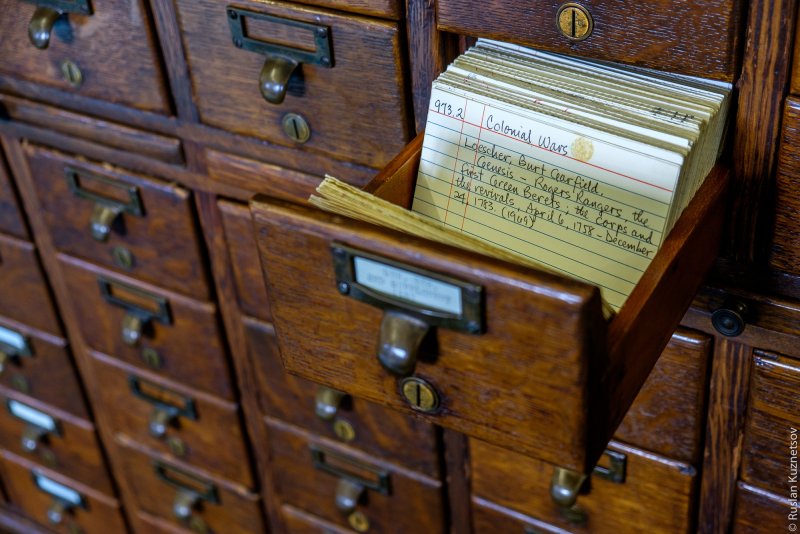 973.2 Colonial Wars
Loescher, Burt Garfield.
Genesis : Rogers Rangers, the
first Green Berets ; the Corps and
the revivals, April 6, 1758 - December
24, 1783. (1969)
© Ruslan Kuznetsov